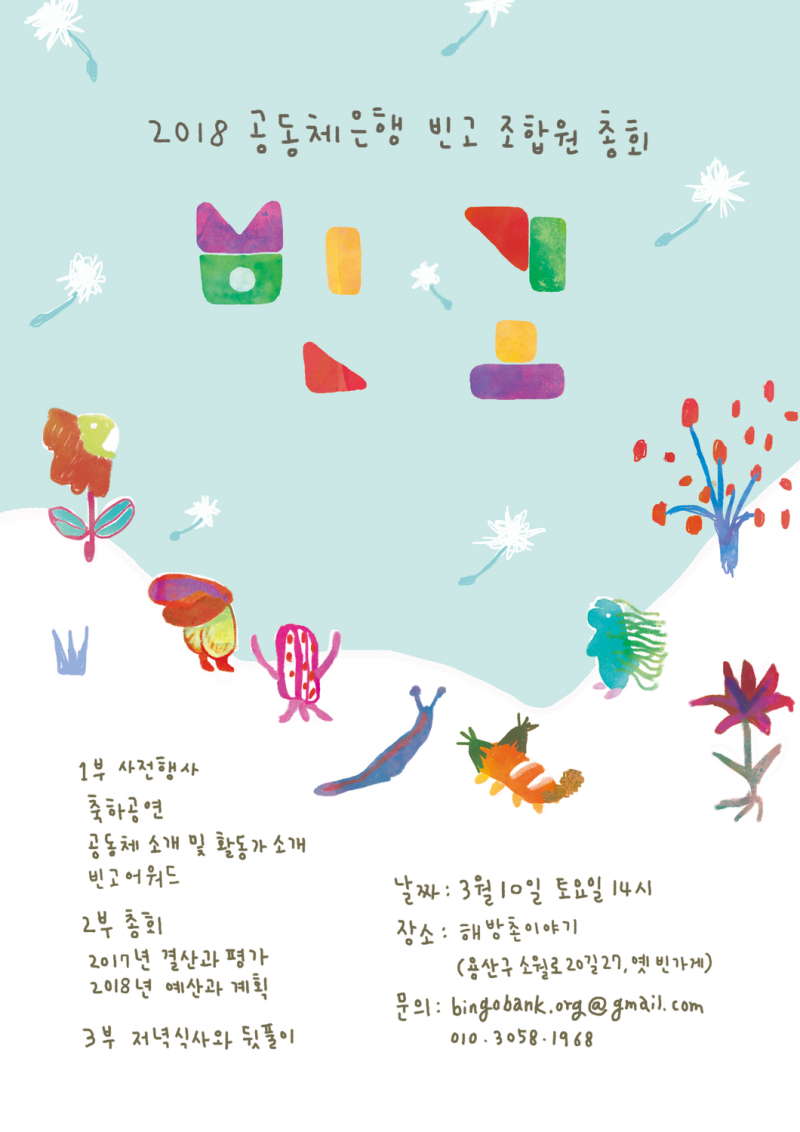 2018 공동체은행 빈고 조합원 총회
빈고
1부 사전행사
축하공연
공동체 소개 및 활동가 소개
빈고어워드
2부 총회
2017년 결산과 평가
2018년 예산과 계획
3부 저녁식사와 뒷풀이
날짜: 3월 10일 토요일 14시
장소: 해방촌이야기
(용산구 소월로20길27, 옛 빈가게)
문의: bingobank.org@gmail.com
010.3058.1968